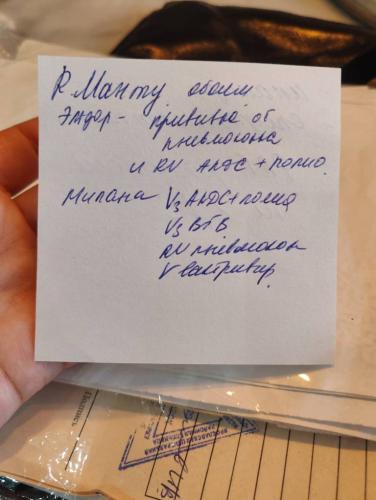 R Манту обоим
Элдор - прививка от
пневмококка
и RV АКДС + полио.
Милана V₃ АКДС + полио
V₃ ВГВ
RV пневмокок
V Вактривир